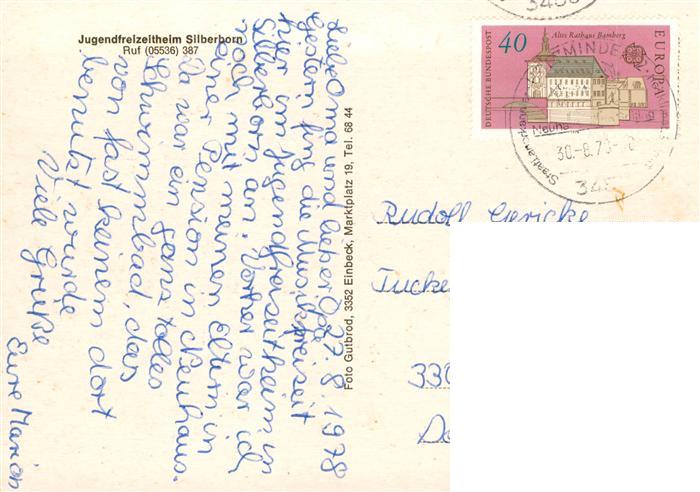 Jugendfreizeitheim Silberborn
Ruf (05536) 387
27.8.1978
Liebe Oma und lieber Opa
Gestern fing die Musikfreizeit
hier im Jugendfreizeitheim in
Silberborn an. Vorher war ich
noch mit meinen Eltern in
einer Pension in Neuhaus.
Da war ein ganz tolles
Schwimmbad, das
von fast keinem dort
benutzt wurde
Viele Grüße
Eure Marion
Foto Gutbrod, 3352 Einbeck, Marktplatz 19, Tel. 68 44
DEUTSCHE BUNDESPOST
40
Altes Rathaus Bamberg
EUROPA
MINDEN
Neuha
30.-8.78-8
345
Rudolf Gericke
Tucke
330